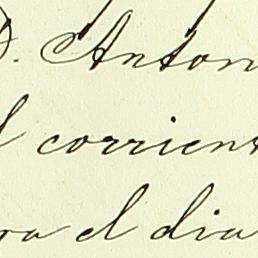 D. Anton
l corrient
ra el dia